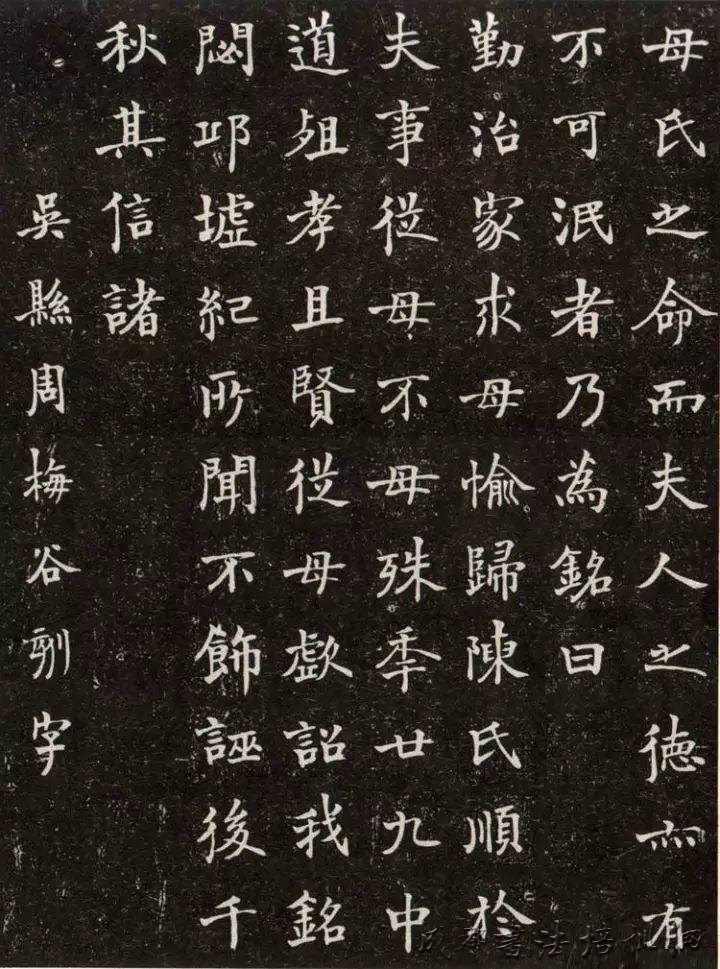 母氏之命而夫人之德亦有
不可泯者乃為銘曰
勤治家求母愉歸陳氏順於
夫事從母不母殊秊廿九中
道殂孝且賢從母歔詔我銘
閟邱墟紀所聞不飾誣後千
秋其信諸
吳縣周梅谷刻字
書法培训